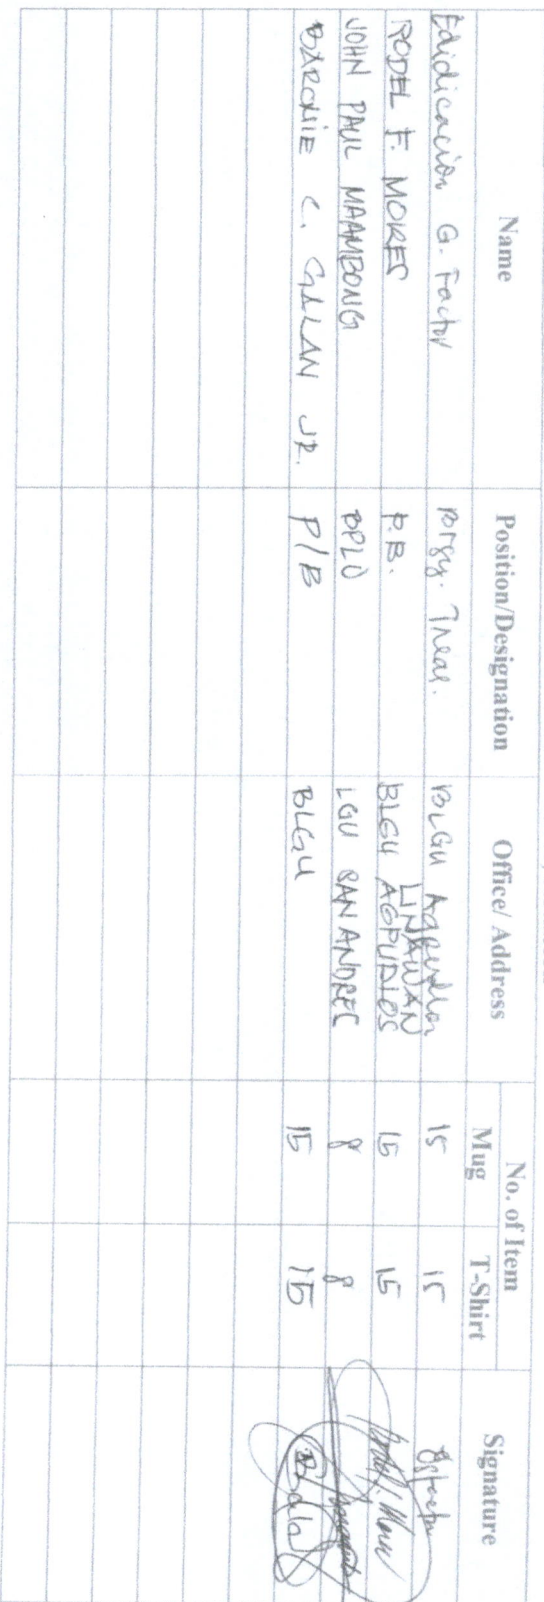 Name Position/Designation Office/ Address No. of Item Signature
Mug T-Shirt
Edidicacion G. Factor Brgy. Treas. BLGU 15 15
RODEL F. MORES P.B. BLGU LINAWAN AGPUDLOS 15 15
JOHN PAUL MAAMBONG BPLO LGU SAN ANDRES 8 8
BARONIE C. GALAN JR. P/B BLGU 15 15